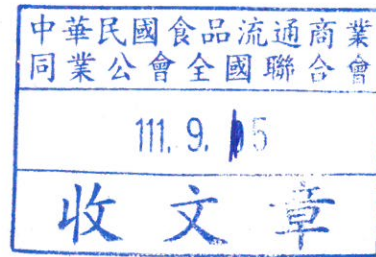 中華民國食品流通商業
同業公會全國聯合會
111. 9. 15
收文章